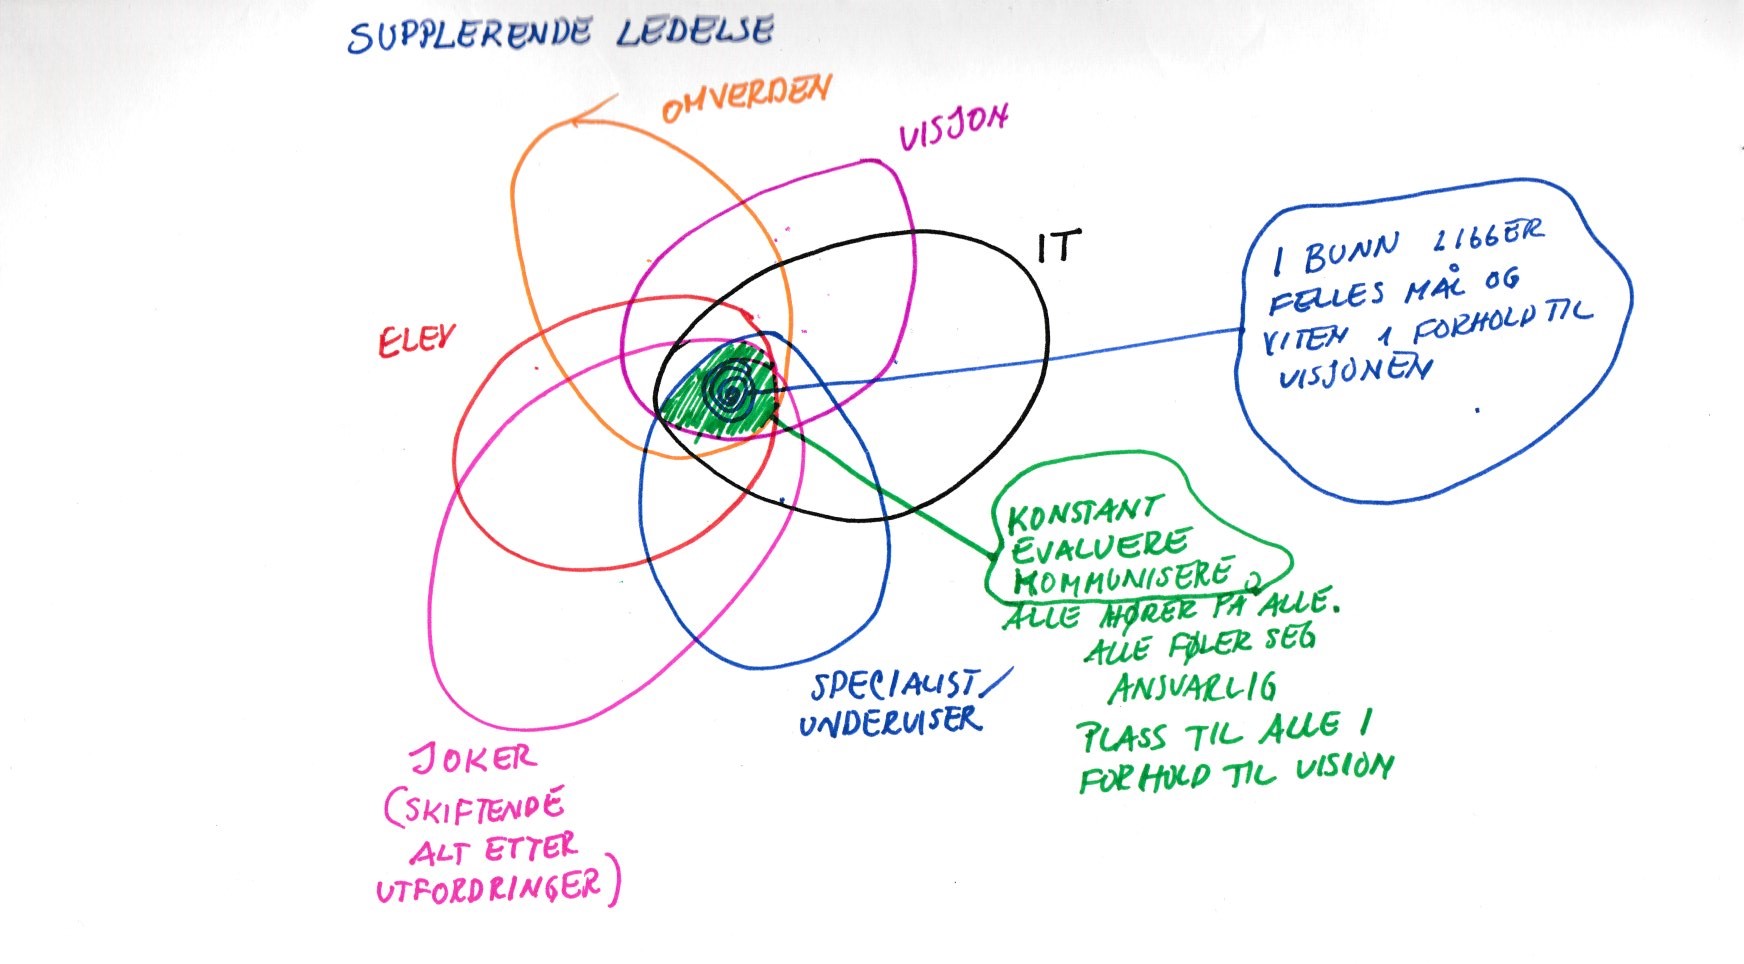 SUPPLERENDE LEDELSE
OMVERDEN
VISJON
IT
ELEV
I BUNN LIGGER
FELLES MÅL OG
VITEN I FORHOLD TIL
VISJONEN
KONSTANT
EVALUERE
KOMMUNISERE
ALLE HØRER PÅ ALLE.
ALLE FØLER SEG
ANSVARLIG
PLASS TIL ALLE I
FORHOLD TIL VISION
SPECIALIST/
UNDERVISER
JOKER
(SKIFTENDE
ALT ETTER
UTFORDRINGER)